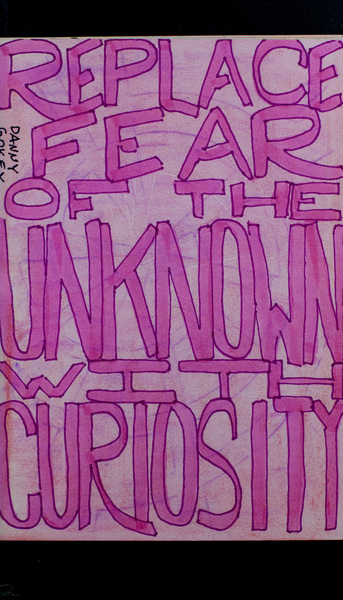 REPLACE
FEAR
OF THE
UNKNOWN
WITH
CURIOSITY
DANNY
GOKEY